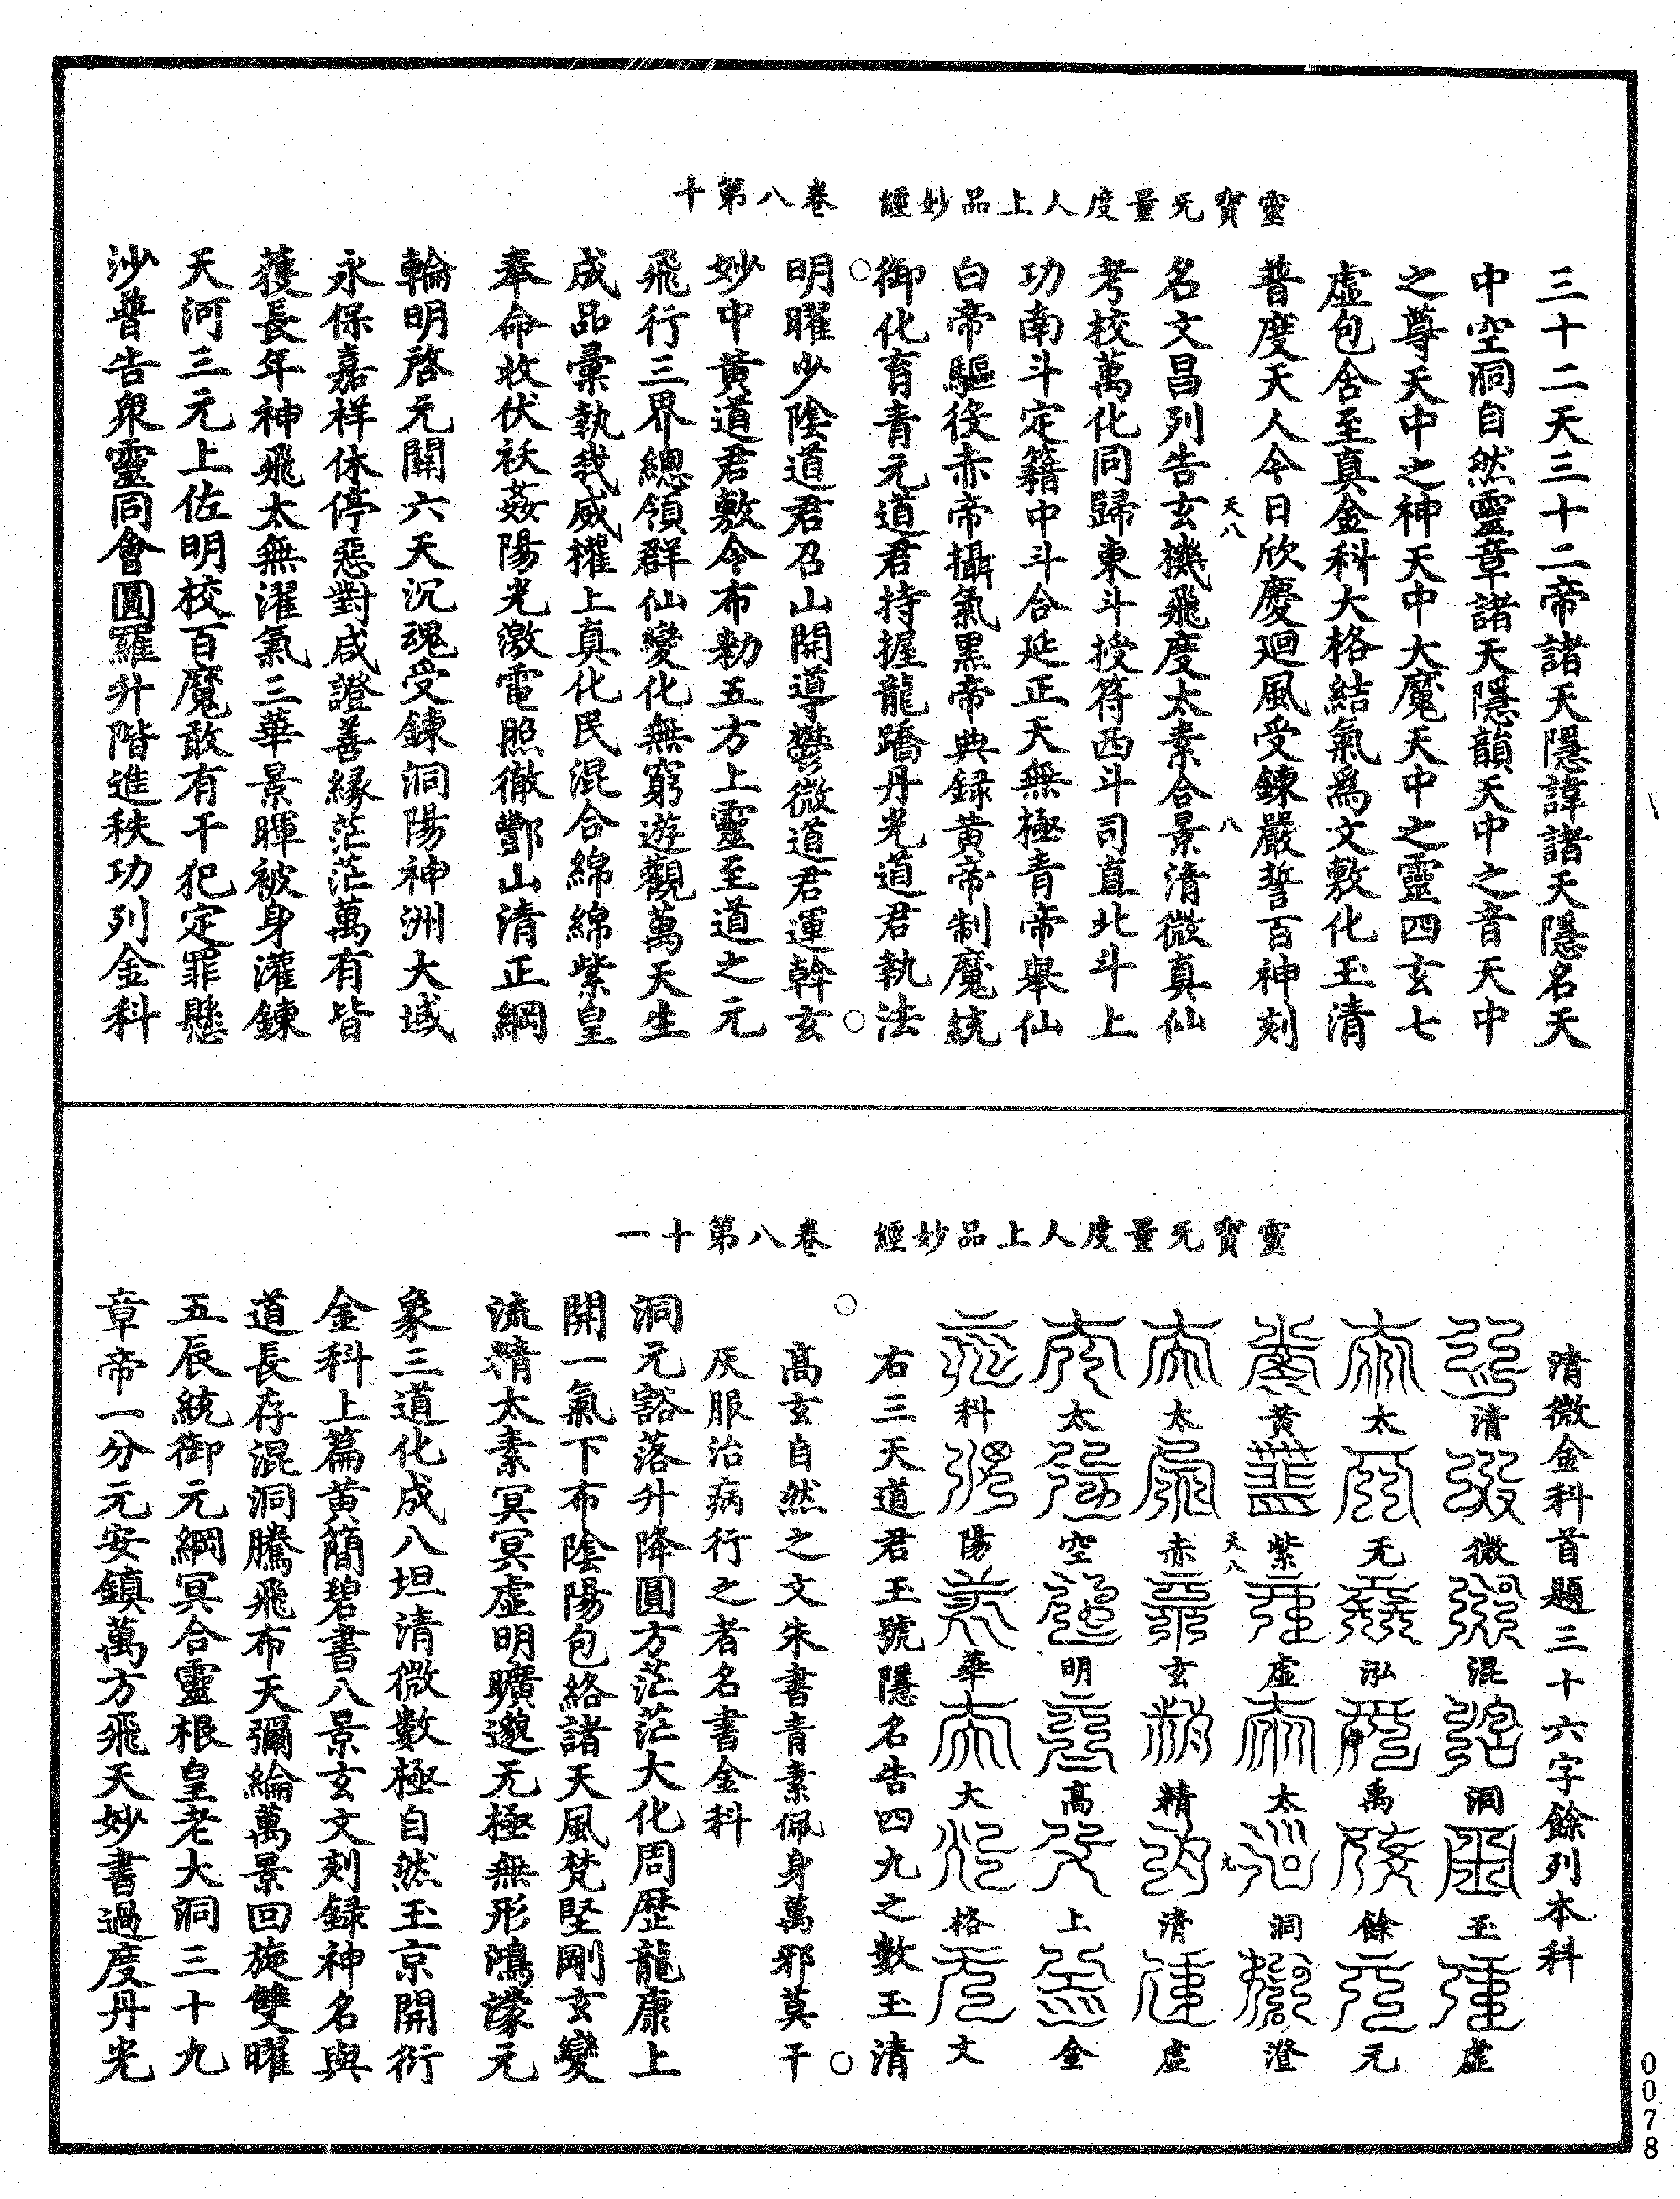 靈寳无量度人上品妙經　卷八第十
三十二天三十二帝諸天隱諱諸天隱名天
中空洞自然靈章諸天隱韻天中之音天中
之尊天中之神天中大魔天中之靈四玄七
虛包含至真金科大格結氣爲文敷化玉清
普度天人今日欣慶廻風受鍊嚴誓百神刻
天八　八
名文昌列告玄機飛度太素合景清微真仙
考校萬化同歸東斗授符西斗司直北斗上
功南斗定籍中斗合延正天無極青帝舉仙
白帝驅役赤帝攝氣黑帝典録黄帝制魔統
御化育青元道君持握龍蹻丹光道君執法
明曜少陰道君召山開導鬱微道君運斡玄
妙中黄道君敷令布勑五方上靈至道之元
飛行三界總領群仙變化無窮遊觀萬天生
成品彙執我威權上真化民混合綿綿紫皇
奉命收伏袄姦陽光激電照徹酆山清正綱
輪明啓元開六天沉魂受鍊洞陽神洲大域
永保嘉祥休停惡對咸證善緣茫茫萬有皆
獲長年神飛太無濯氣三華景暉被身灌鍊
天河三元上佐明校百魔敢有干犯定罪懸
沙普告衆靈同會圓羅升階進秩功列金科
靈寳无量度人上品妙經　卷八第十一
清微金科首題三十六字餘列本科
清微混洞玉虛
太无泓禹餘元
黄紫虛太洞澄
天八　九
太赤玄精清虛
太空明高上金
科陽華大格文
右三天道君玉號隱名告四九之數玉清
高玄自然之文朱書青素佩身萬邪莫干
灰服治病行之者名書金科
洞元豁落升降圓方茫茫大化周歷龍康上
開一氣下布陰陽包絡諸天風梵堅剛玄變
流精太素冥冥虛明曠邈无極無形鴻濛元
象三道化成八坦清微數極自然玉京開衍
金科上篇黄簡碧書八景玄文刻録神名與
道長存混洞騰飛布天彌綸萬景回旋雙曜
五辰統御元綱冥合靈根皇老大洞三十九
章帝一分元安鎮萬方飛天妙書過度丹光
0078